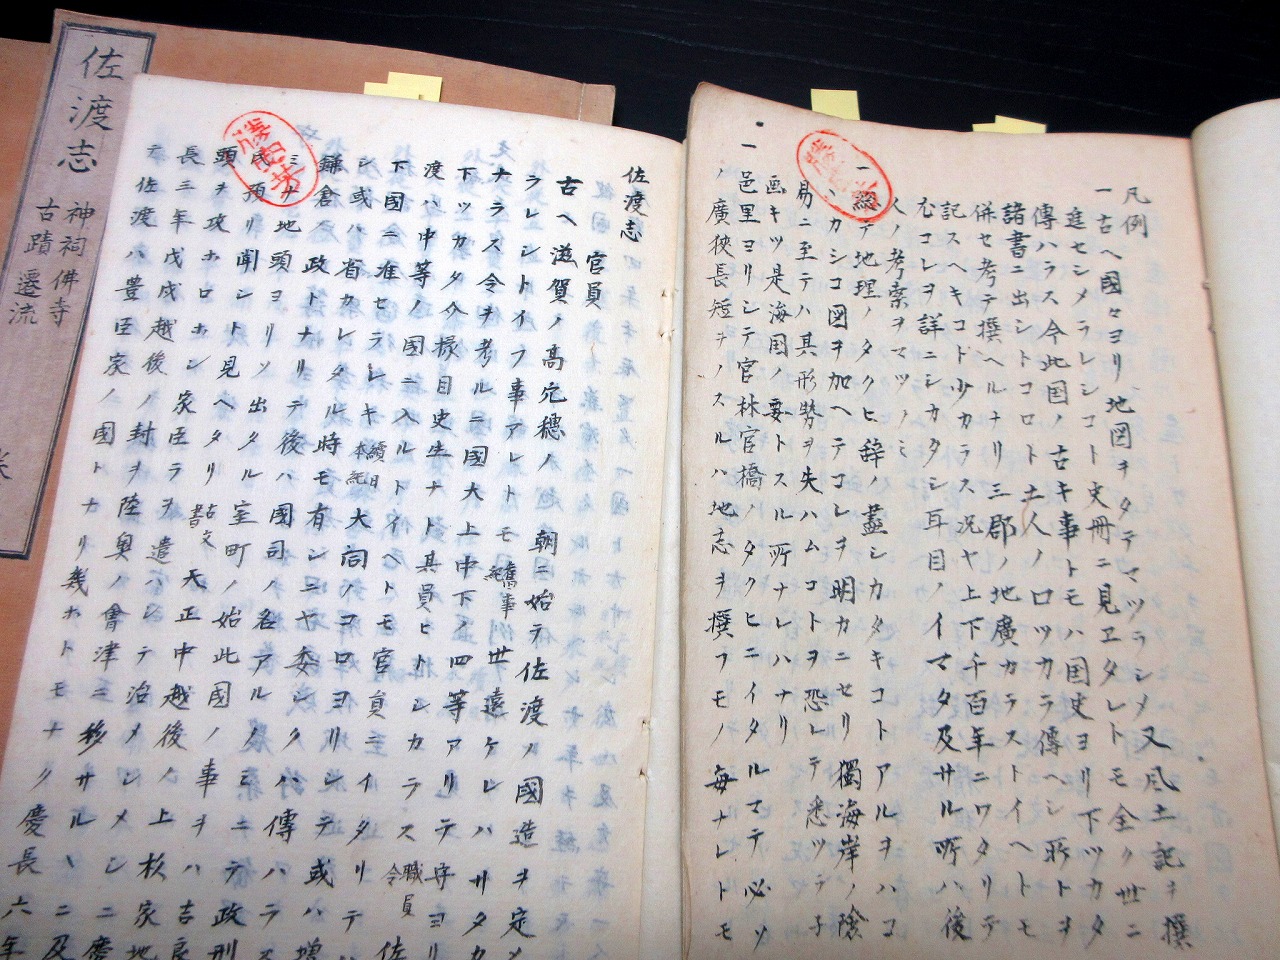 凡例
一古ヘ國々ヨリ地図ヲタテマツラシメ又風土記ヲ撰
進セシメラレシコト史冊ニ見エタレトモ全ク世ニ
傳ハラス今此国ノ古キ事トモハ国史ヨリ下ツカタ
諸書ニ出シトコロト土人ノ口ツカラ傳ヘシ所トヲ
併セ考テ撰ヘルナリ三郡ノ地廣カラストイヘトモ
記スヘキコト少カラス況ヤ上下千百年ニワタリテ
ムコレヲ詳ニシカタシ耳目ノイマタ及サル所ハ後
人ノ考索ヲマツノミ
一総テ地理ノタクヒ辞ノ盡シカタキコトアルヲハコ
ヽカシコ図ヲ加ヘテコレヲ明カニセリ獨海岸ノ険
易ニ至テハ其形勢ヲ失ハムコトヲ恐レテ悉ツテ子
画キツ是海国ノ要トスル所ナレハナリ
一邑里ヨリシテ官林官橋ノタクヒニイタルマテ必ソ
ノ廣狹長短ヲノスルハ地志ヲ撰フモノノ毎ナレトモ
佐渡志
官員
古ヘ滋賀ノ高穴穂ノ朝ニ始テ佐渡ノ國造ヲ定メ
ラレシトイフ事アレトモ舊事紀世遠ケレハサタカ
ナラス令ヲ考ルニ國大上中下ノ四等アリテ守ヨリ
下ツカタ介掾目史生ナト其員ヒトシカラス職員令佐
渡ハ中等ノ國ニ入ルトイヘトモ官員ニイタリテハ
下國ニ准セラレキ續日本紀大同ノコロヨリシテ或ハ増
シ或ハ省カレタル時モ有シニヤ委シクハ傳ハラス
鎌倉ノ政トナリテ後ハ國司ノ名アルノミニテ政刑
ミナ地頭ヨリソ出タル室町ノ始此國ノ事ヲハ吉良
氏預リ聞シト見ヘタリ古文書天正中越後ノ上杉家地
頭ヲ攻ホロホシ家臣ラヲ遣ハシテ治メシメシニ慶
長三年戊戌越後ノ封ヲ陸奥ノ會津ニ移サルヽニ及
テ佐渡ハ豊臣家ノ國トナリ幾ホトモナク慶長六年
佐渡志
神祠佛寺
古蹟遷流